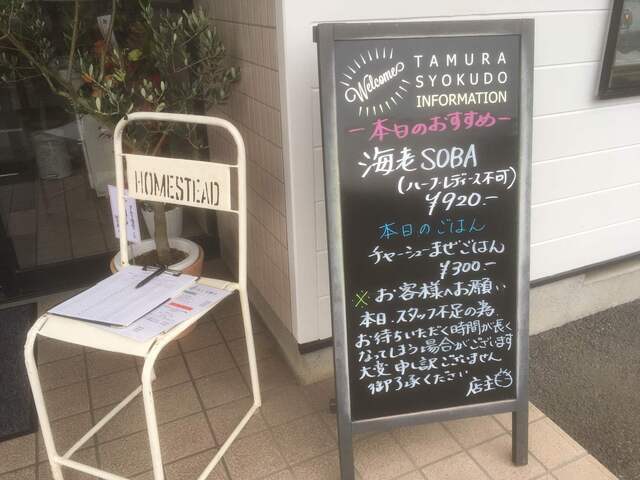 Welcome
TAMURA
SYOKUDO
INFORMATION
ー本日のおすすめー
海老SOBA
(ハーフ・レディース不可)
¥920.-
本日のごはん
チャーシューまぜごはん
¥300.-
※お客様へお願い
本日、スタッフ不足の為
お待ちいただく時間が長く
なってしまう場合がございます
大変申し訳ございません
御了承ください
店主
HOMESTEAD